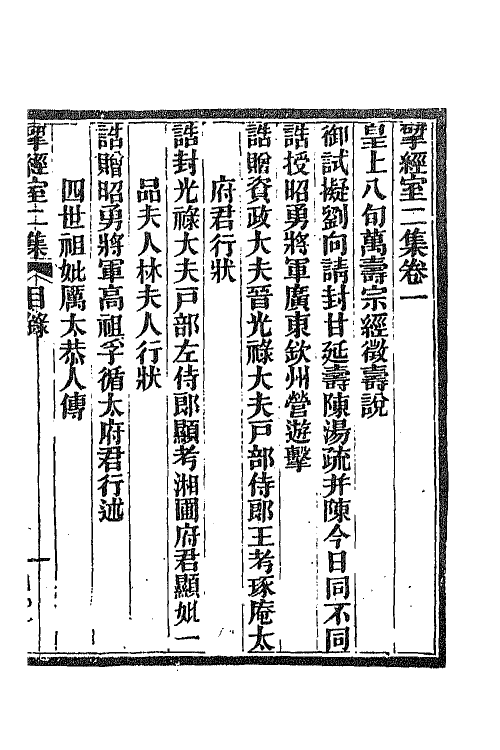 揅經室二集卷一
皇上八旬萬壽宗經徵壽說
御試擬劉向請封甘延壽陳湯疏并陳今日同不同
誥授昭勇將軍廣東欽州營遊擊
誥贈資政大夫晉光祿大夫戸部侍郎王考琢庵太
府君行狀
誥封光祿大夫戸部左侍郎顯考湘圃府君顯妣一
品夫人林夫人行狀
誥贈昭勇將軍高祖孚循太府君行述
四世祖妣厲太恭人傳
揅經室二集 目錄 一